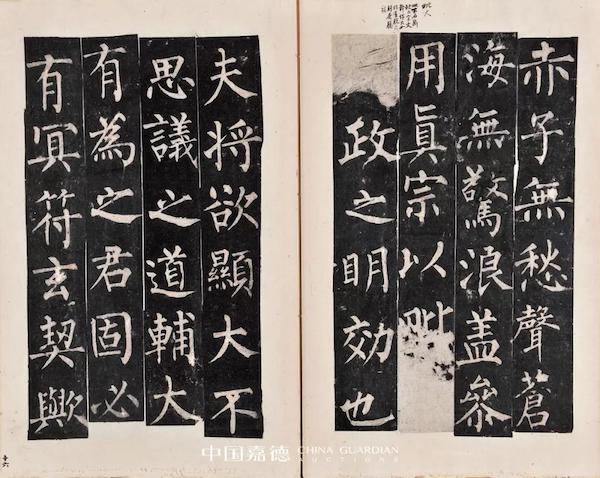 赤子無愁聲蒼
海無驚浪盖參
用眞宗以毗
政之眀効也
夫将欲顯大不
思議之道輔大
有為之君固必
有冥符玄契歟
十六
中国嘉德 CHINA GUARDIAN
AUCTIONS